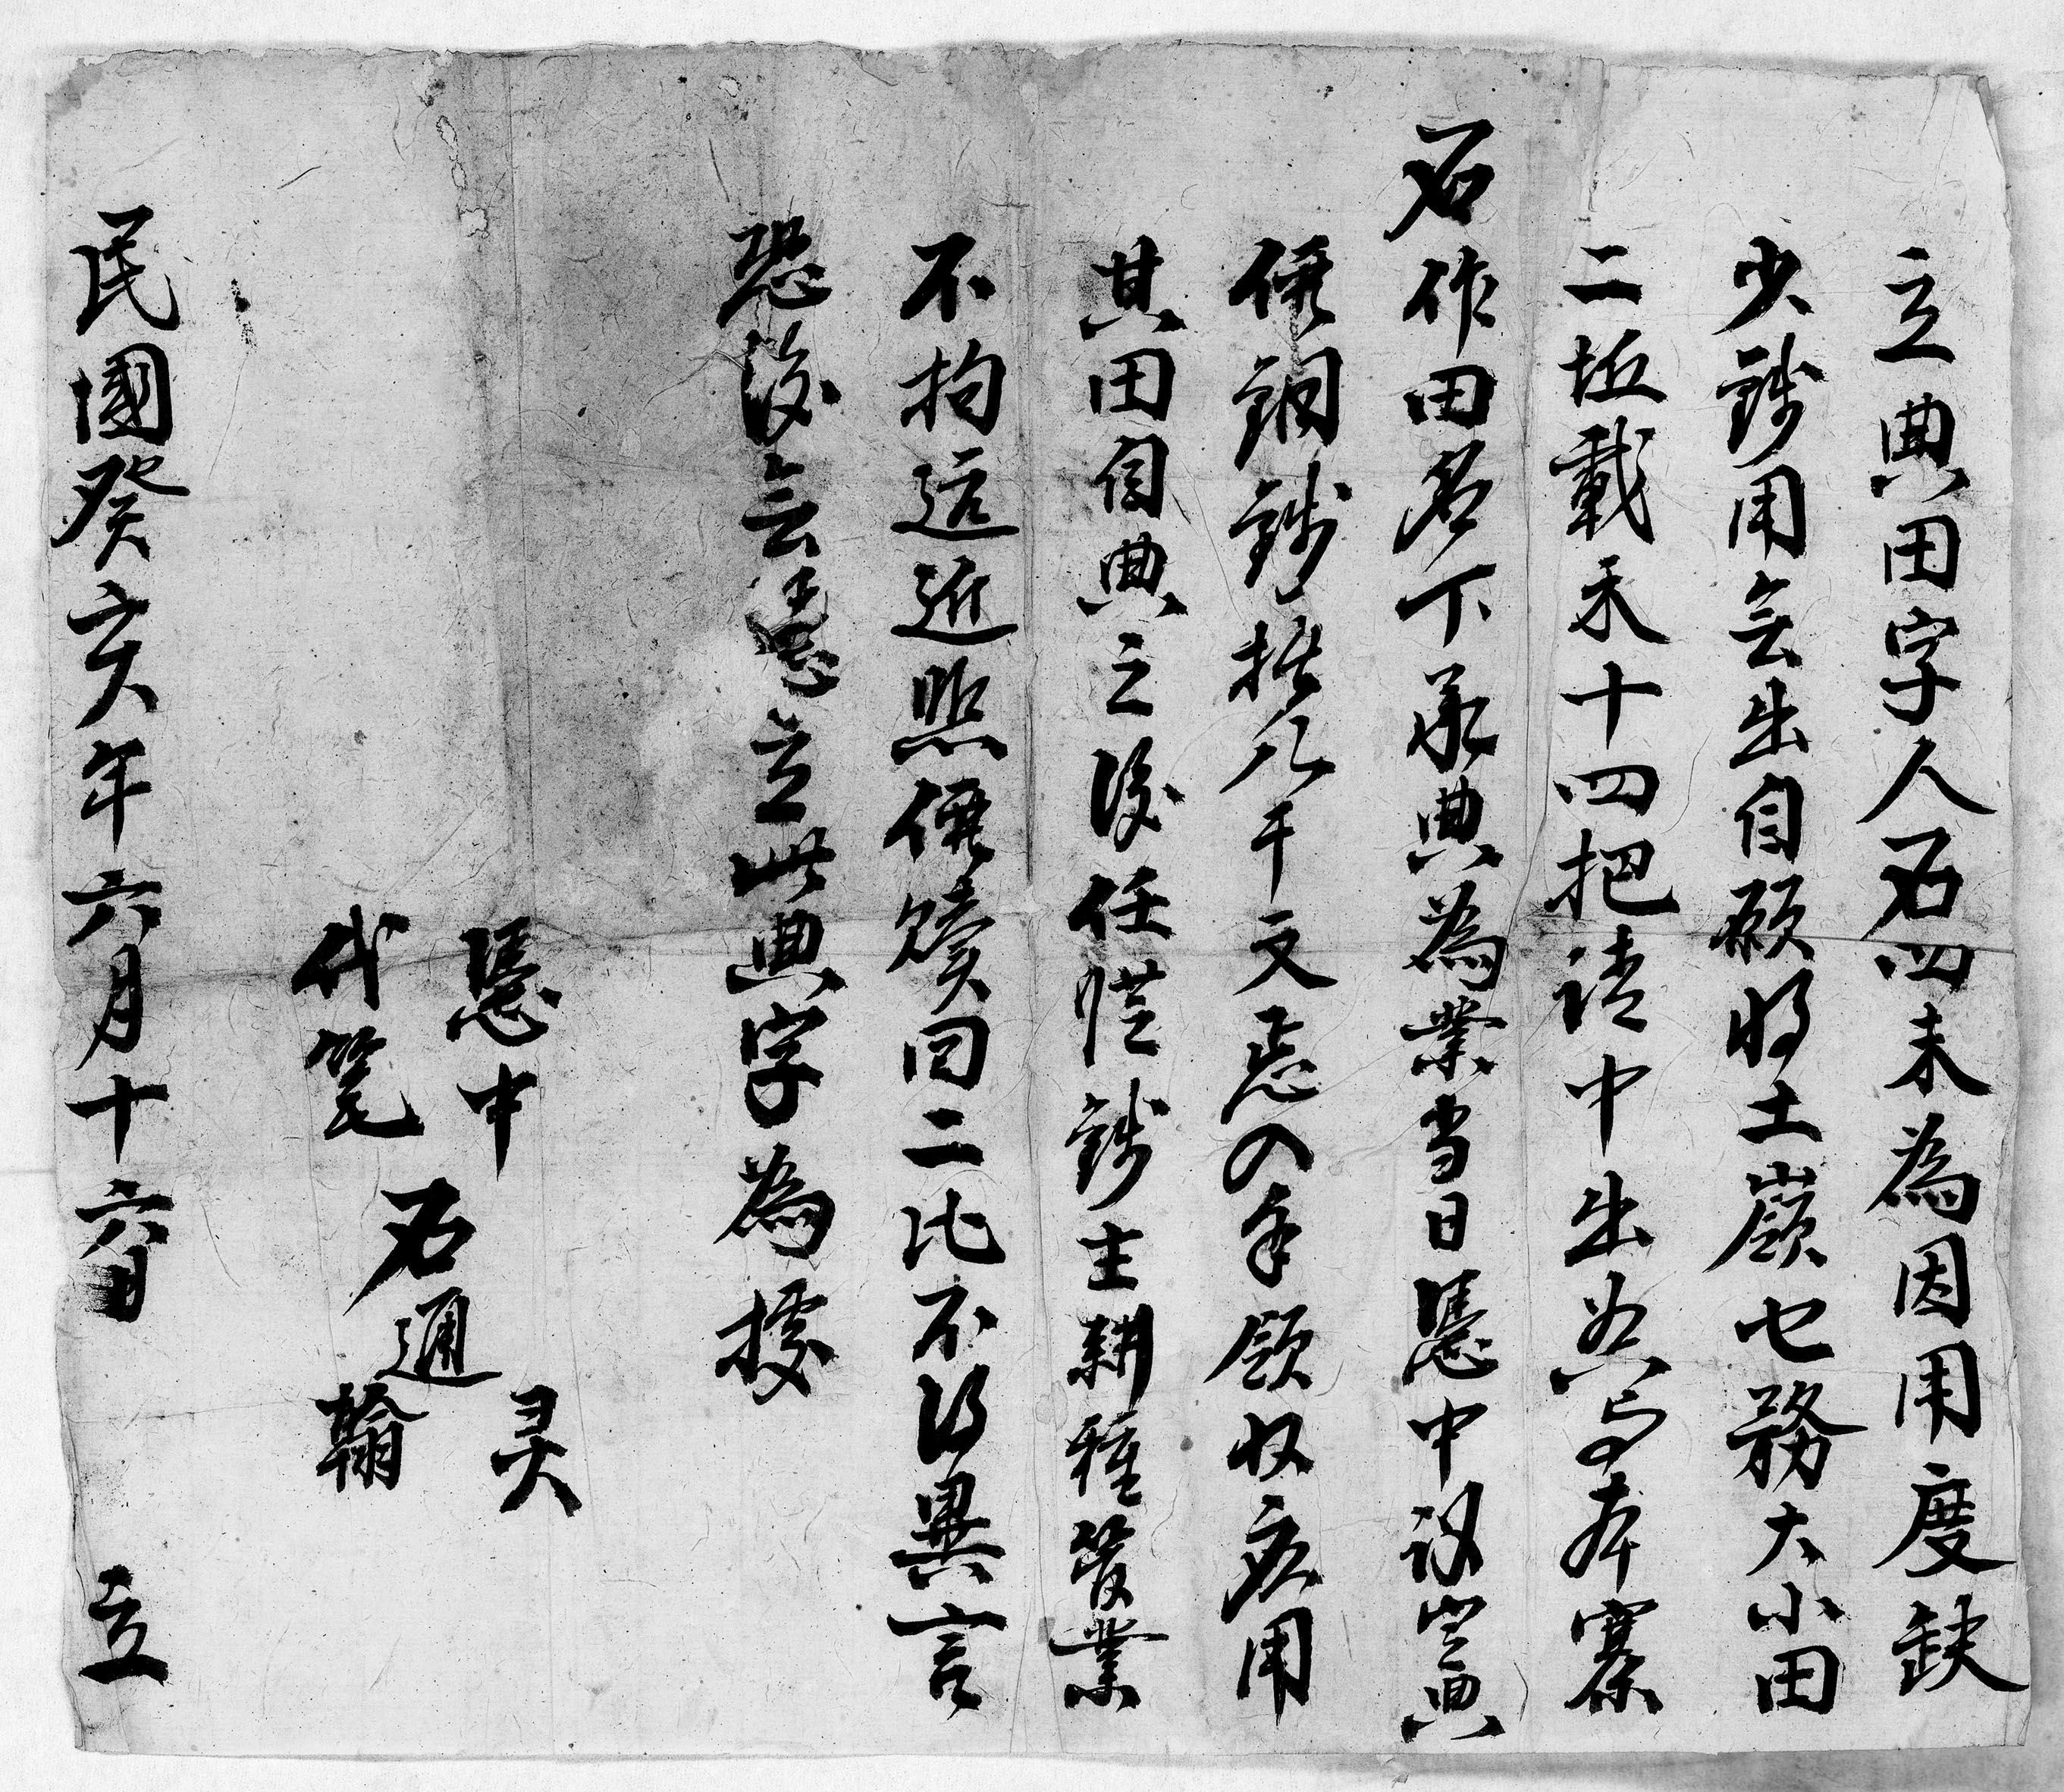 立典田字人石四未為因用度缺
少錢用無出自願將土嶺七務大小田
二坵載禾十四把請中出典與本寨
石作田名下承典為業当日憑中议定典
價銅錢拾八千文其入手領收应用
其田自典之後任從錢主耕種管業
不拘远近照價贖回二比不得異言
恐後無憑立此典字為據
憑中 石通灵
代笔 石通翰
民國癸亥年六月十六日 立